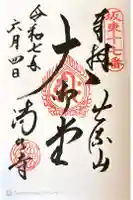 坂東十七番
奉拝 出流山
大御堂
令和七年
六月四日
満願寺